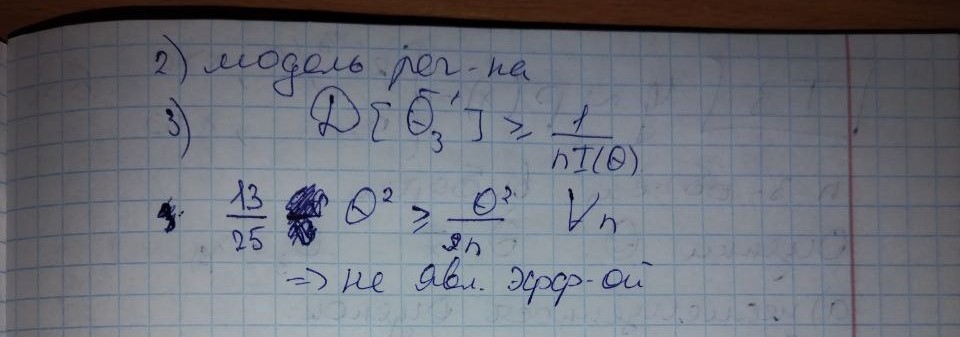 2) модель рег-на
3) D[θ̃₃'] ≥ 1/(nI(θ))
13/25 θ² ≥ θ²/2n ∀n
=> не явл. эфф-ой